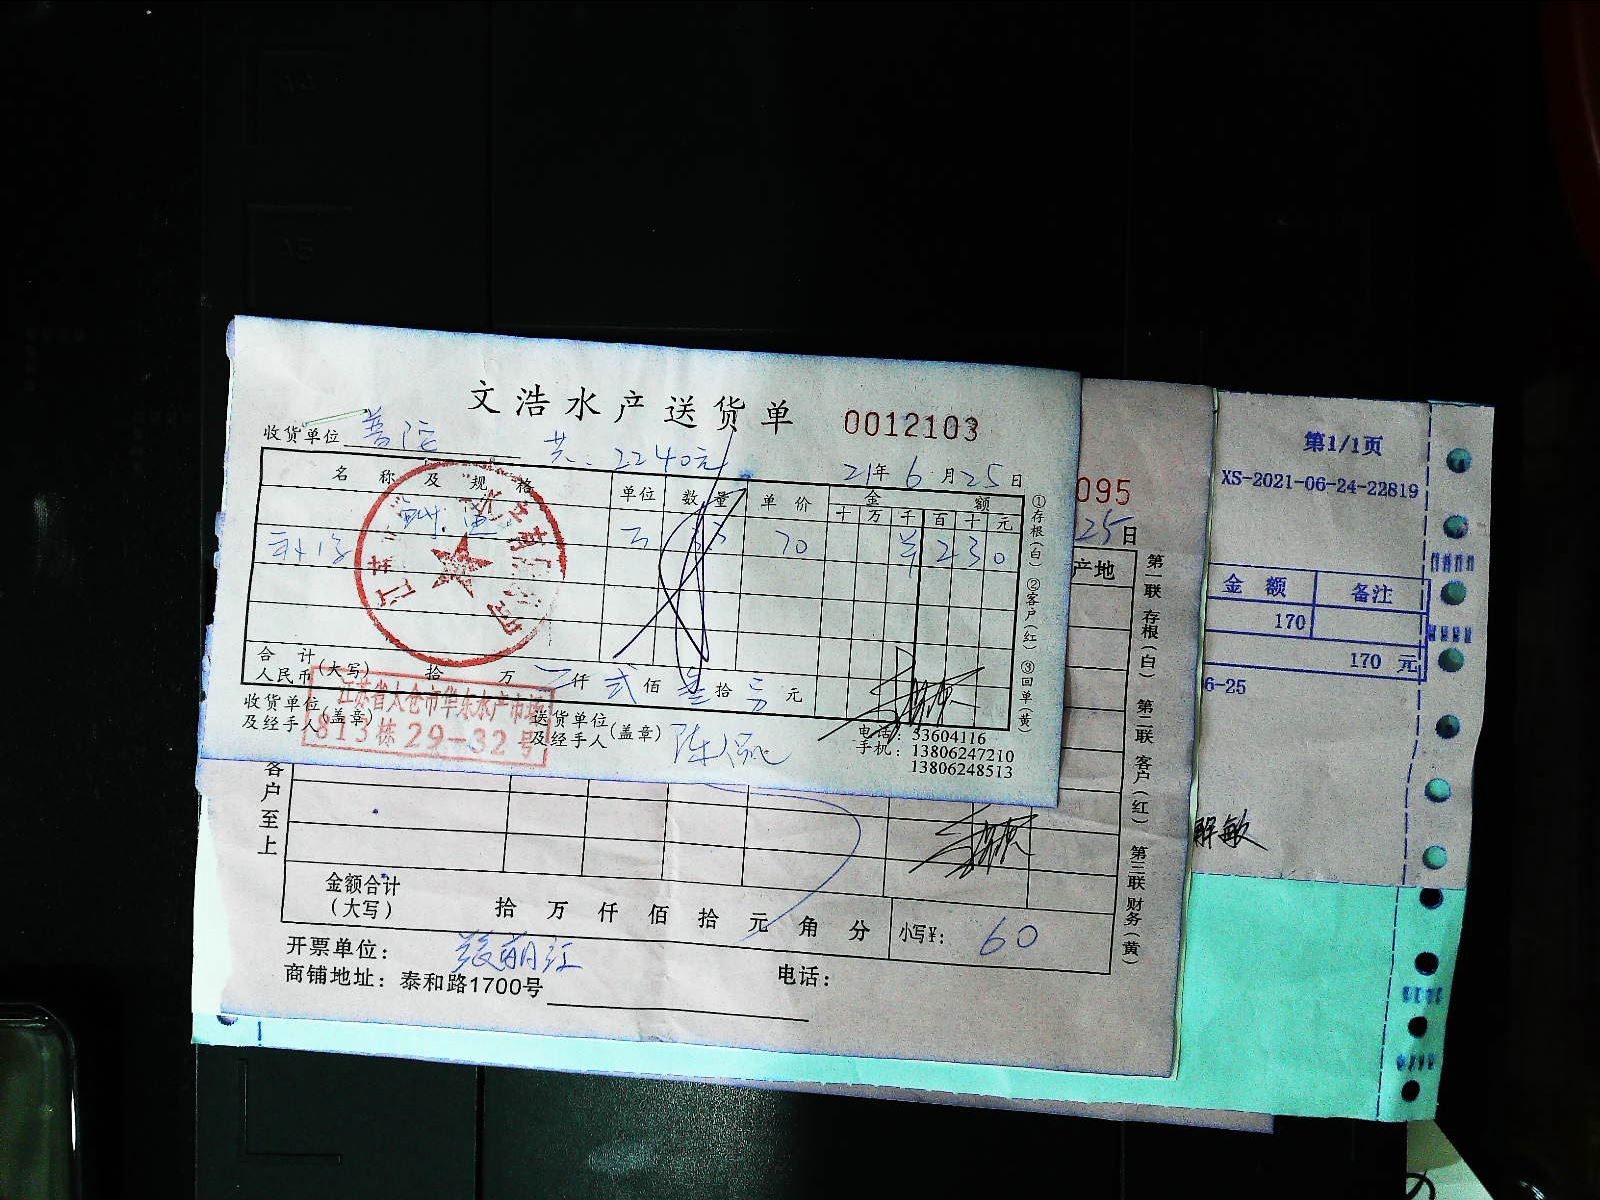 文浩水产送货单 0012103
收货单位 普陀 共:2240元 21年6月25日
名称及规格 单位 数量 单价 金额
十 万 千 百 十 元
70 2 3 0
合计
人民币(大写) 拾 万 仟 贰 佰 叁 拾 元
收货单位
及经手人(盖章)
送货单位
及经手人(盖章)
江苏省太仓市华东水产市场
813栋29-32号
电话:53604116
手机:13806247210
13806248513
①存根(白) ②客户(红) ③回单(黄)
095
25日
产地
第一联 存根(白) 第二联 客户(红) 第三联 财务(黄)
客户至上
金额合计
(大写) 拾 万 仟 佰 拾 元 角 分 小写¥: 60
开票单位:
商铺地址:泰和路1700号 电话:
第1/1页
XS-2021-06-24-22819
金 额 备注
170
170 元
6-25
解敏